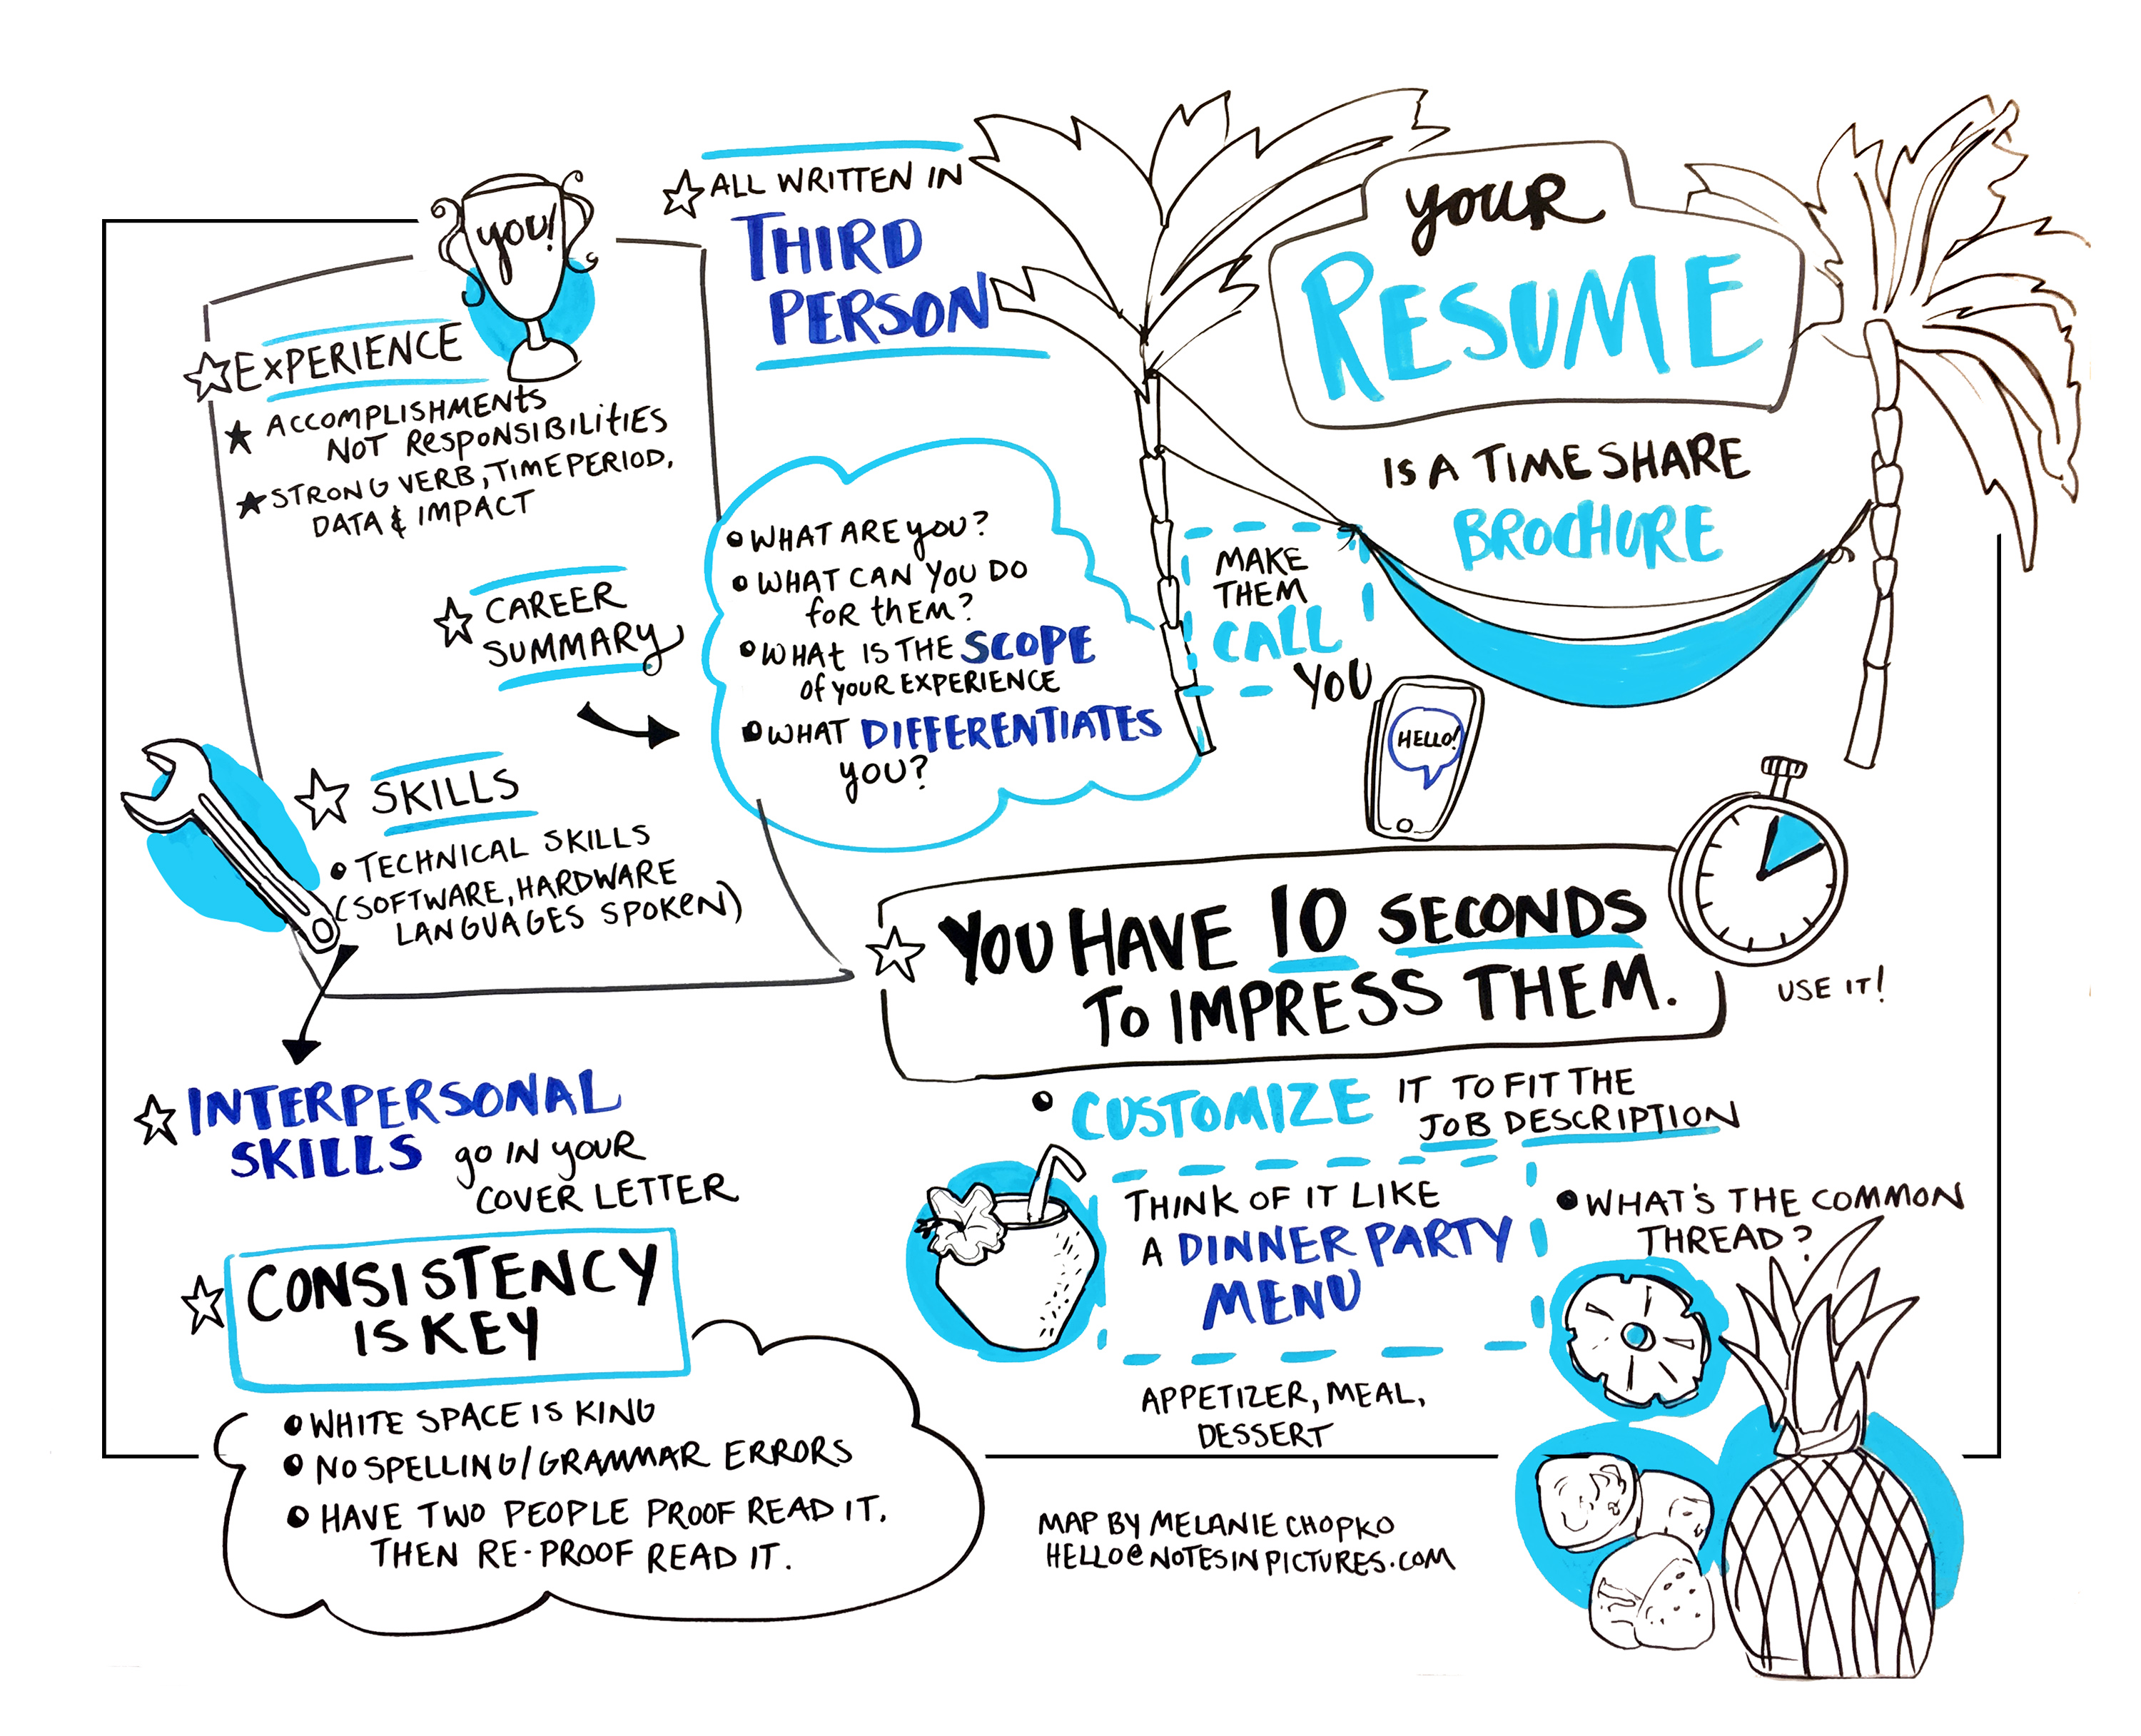 your
RESUME
IS A TIME SHARE
BROCHURE
MAKE
THEM
CALL
YOU
HELLO!
ALL WRITTEN IN
THIRD
PERSON
you!
EXPERIENCE
ACCOMPLISHMENTS
NOT RESPONSIBILITIES
STRONG VERB, TIME PERIOD,
DATA & IMPACT
CAREER
SUMMARY
WHAT ARE you?
WHAT CAN YOU DO
for them?
WHAT IS THE SCOPE
of YOUR EXPERIENCE
WHAT DIFFERENTIATES
you?
SKILLS
TECHNICAL SKILLS
(SOFTWARE, HARDWARE
LANGUAGES SPOKEN)
INTERPERSONAL
SKILLS go IN YOUR
COVER LETTER
CONSISTENCY
IS KEY
WHITE SPACE IS KING
NO SPELLING/GRAMMAR ERRORS
HAVE TWO PEOPLE PROOF READ IT.
THEN RE-PROOF READ IT.
YOU HAVE 10 SECONDS
TO IMPRESS THEM.
USE IT!
CUSTOMIZE IT TO FIT THE
JOB DESCRIPTION
THINK OF IT LIKE
A DINNER PARTY
MENU
APPETIZER, MEAL,
DESSERT
WHAT'S THE COMMON
THREAD?
MAP BY MELANIE CHOPKO
HELLO@NOTESINPICTURES.COM